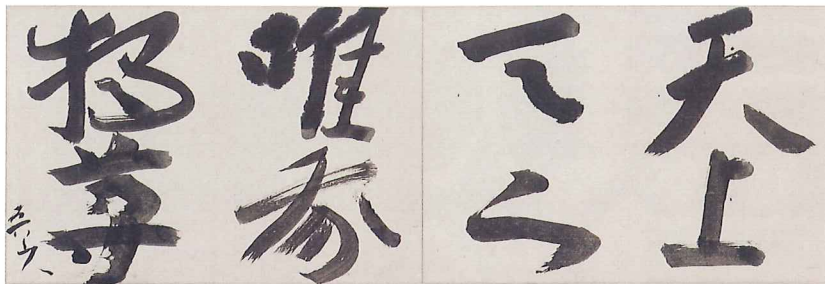 天上
天下
唯我
独尊